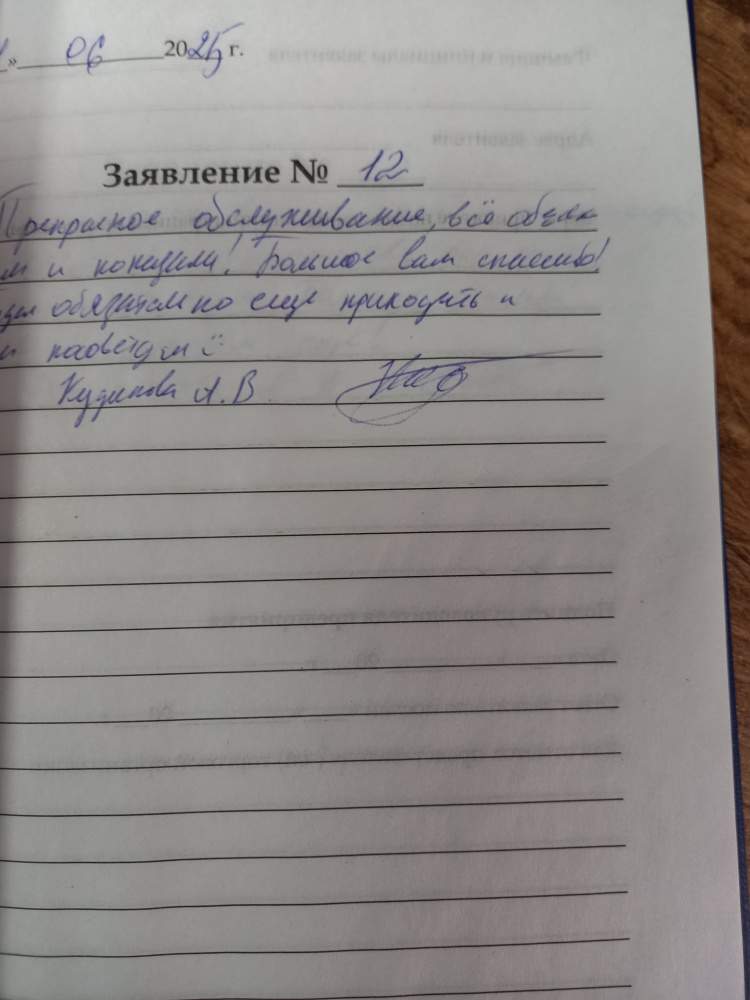 » 06 2025 г.
Заявление № 12
Прекрасное обслуживание, всё объяс
и показали! Большое вам спасибо!
обязательно еще приходить и

Кудинова А.В